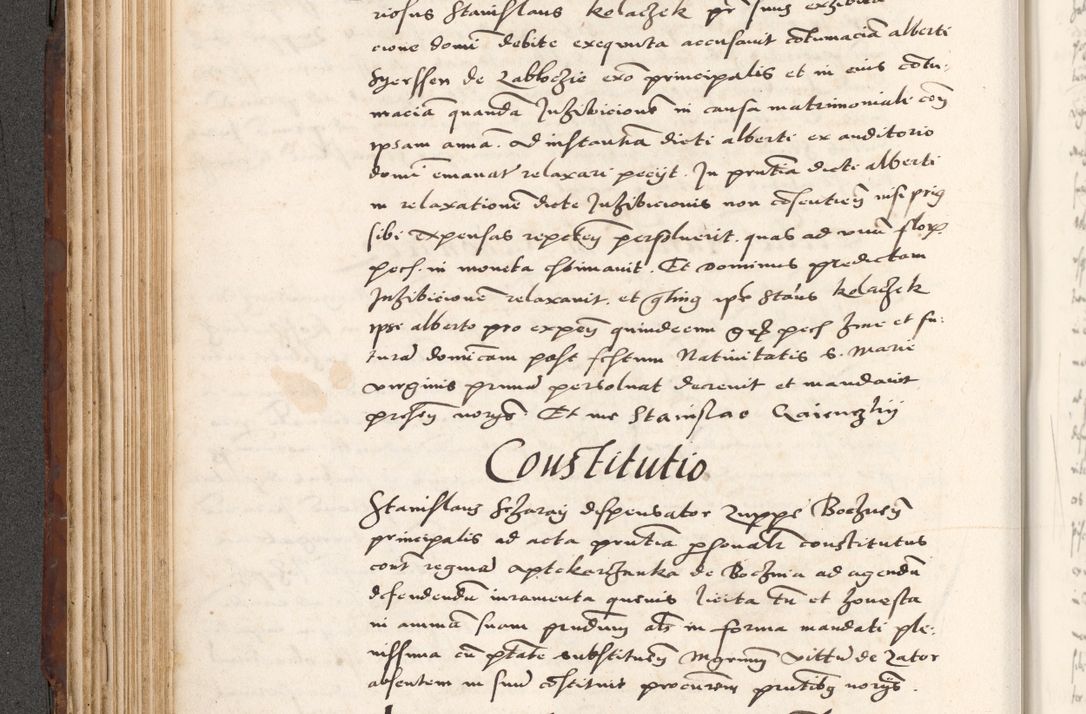 riosus Stanislaus kolaczek pr suus exhibita
cione domi debite exequuta accusavit cotumacia alberti
de Zabloczie exo principalis et in eius cotu:
macia quanda Inhibicione in causa matrimoniali con
ipsam anna. Ad instantia dicti alberti ex auditorio
domi emanat relaxari peciit. In pntia dicti alberti
in relaxatione dicte Inhibicionis non cosentien nisi prius
sibi expensas repeten persolverit. quas ad unu flor
pech. in moneta estimavit. Et dominus predictam
Inhibicione relaxavit. et ipse Staus kolaczek
ipse alberto pro expen quindecim pech hinc et fu:
tura domicam post festum Nativitatis s. Marie
virginis prima persolvat decrevit et mandavit
presen noriis Et me Stanislao
Constitutio
Stanislaus dispensator Zuppe Bochnen
principalis ad acta pntia psonalr constitutus
cont regina aptekarzanka de Bochnia ad agendu
defendendu iuramenta quevis licita tn et honesta
in animam suam prndum als in forma mandati ple:
nissima cu ptate substituen Mgrum vittu de Zator
absentem in suu costituit procurem pntibus noriis.